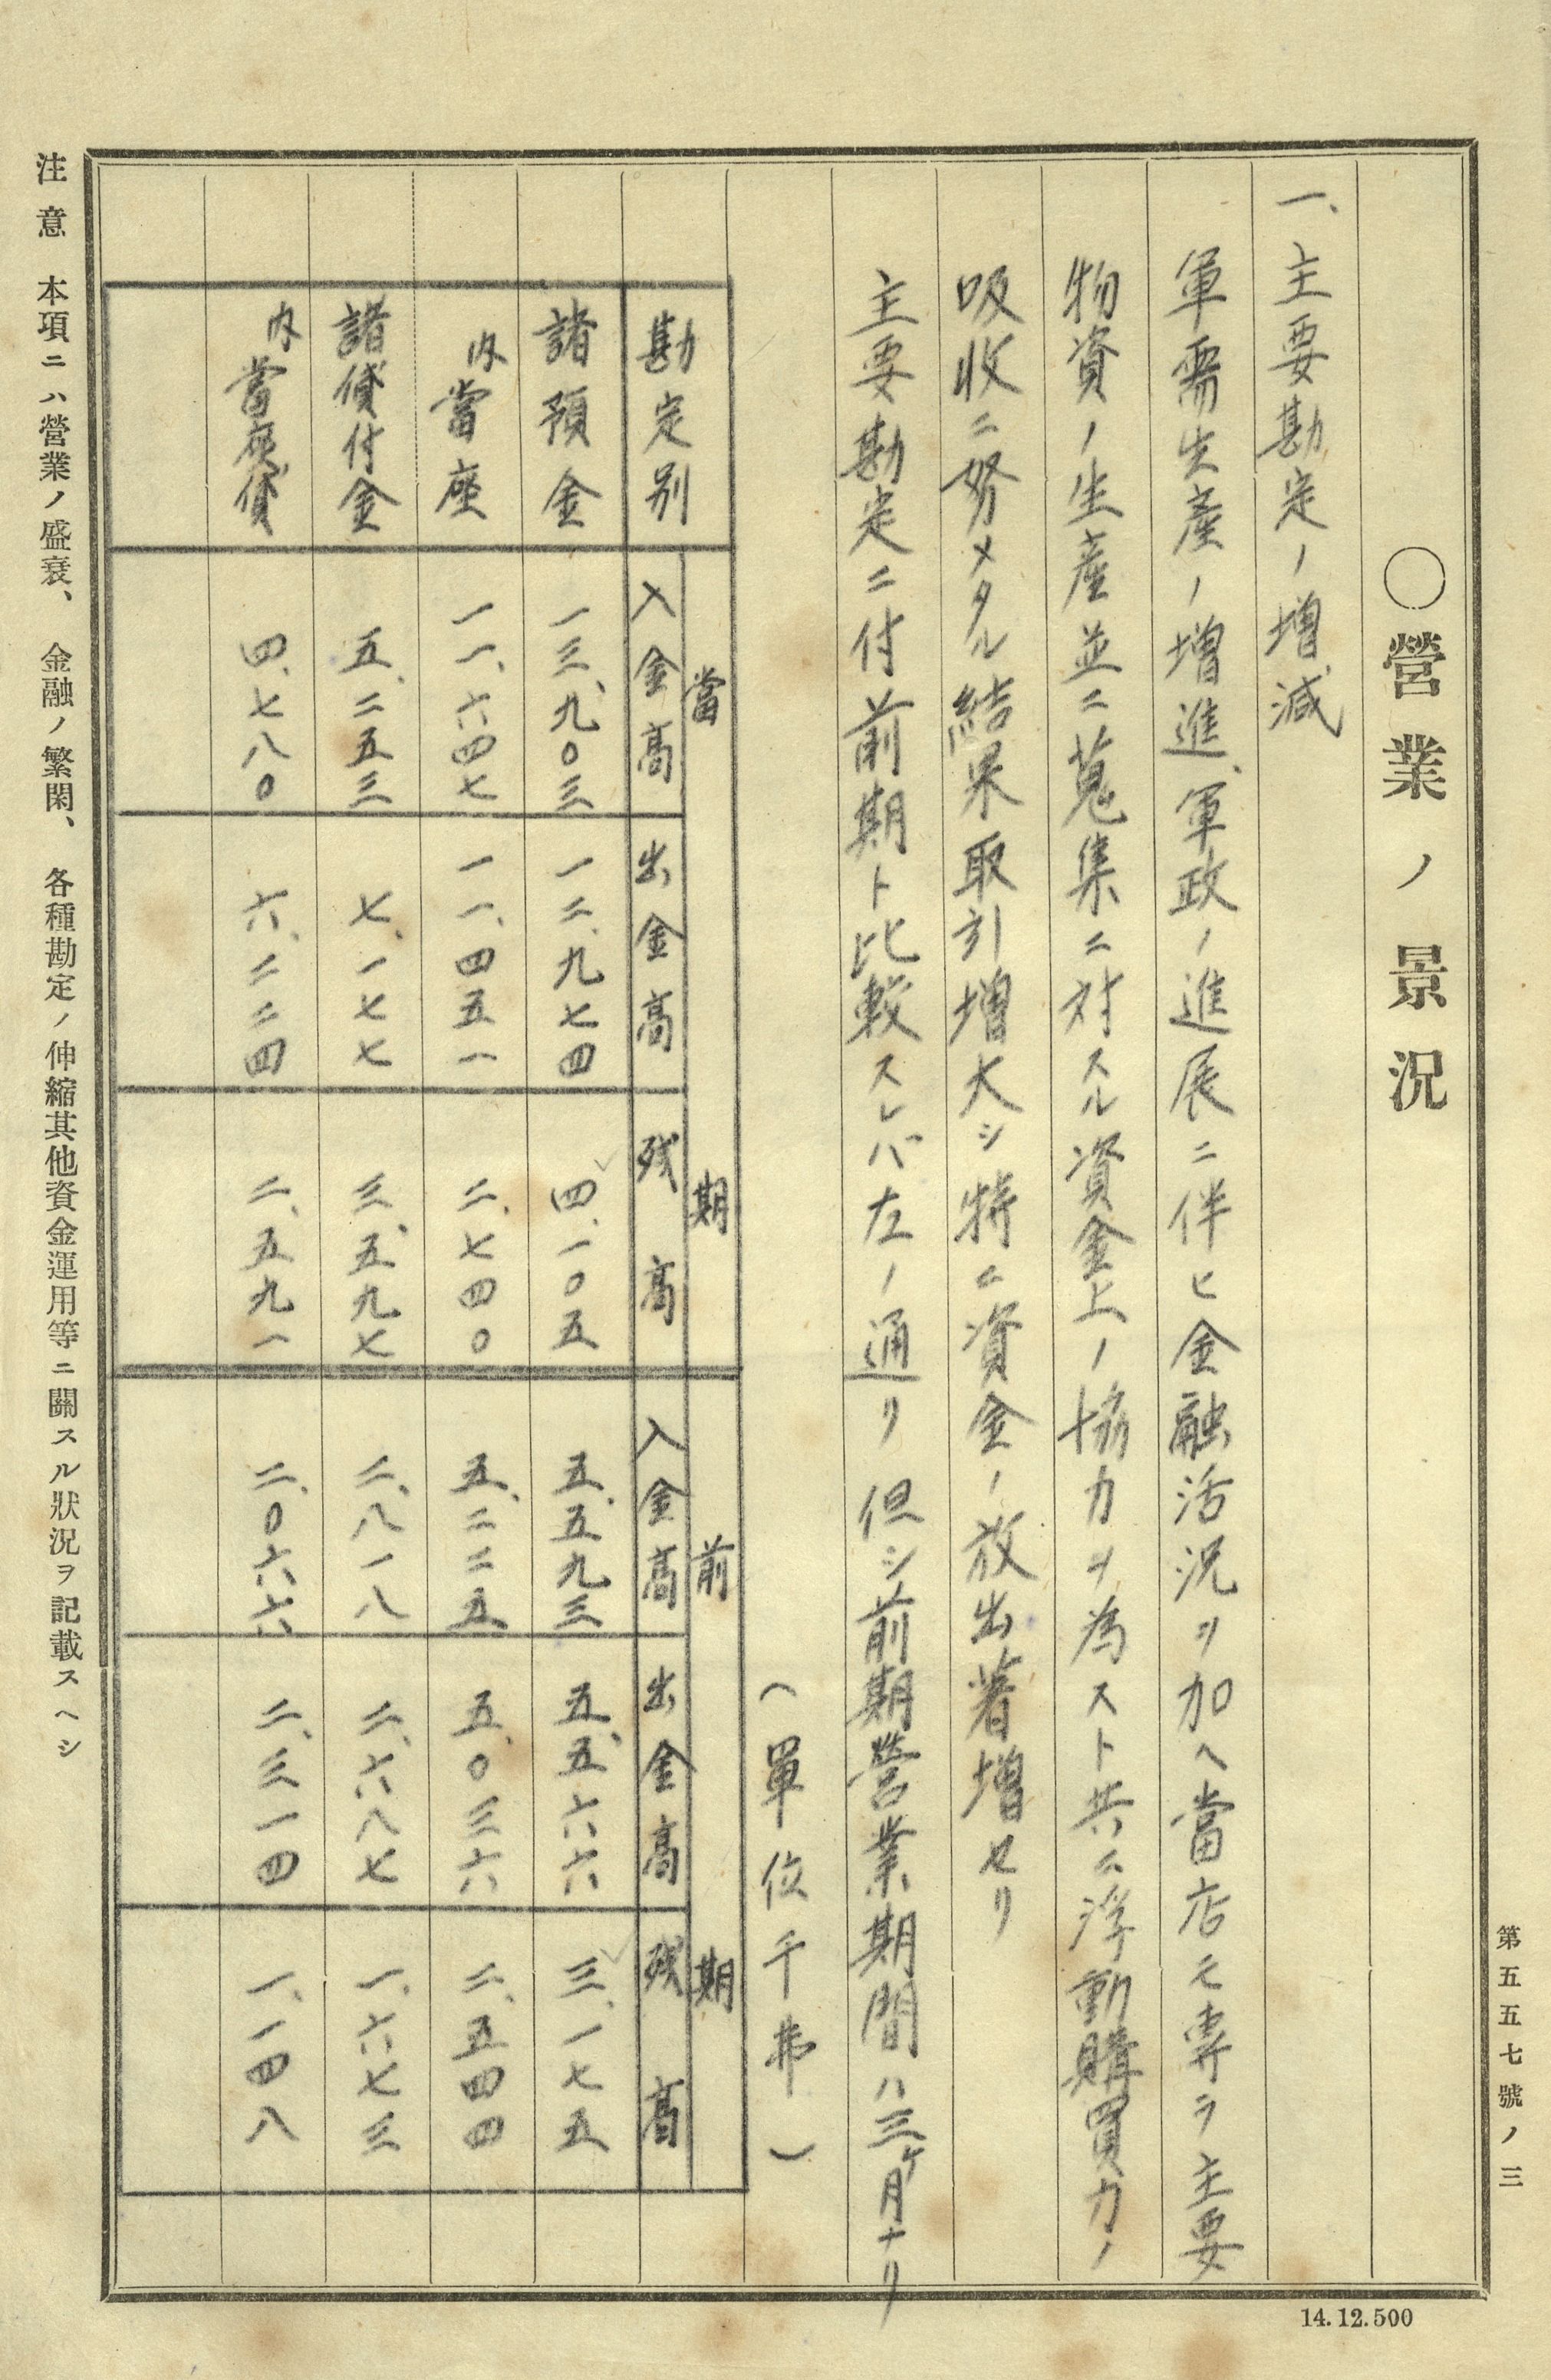 第五五七號ノ三
〇營業ノ景況
一、主要勘定ノ増減
軍需生產ノ増進、軍政ノ進展ニ伴ヒ金融活況ヲ加ヘ當店モ專ラ主要
物資ノ生產並ニ蒐集ニ対スル資金上ノ協力ヲ為スト共ニ浮動購買力ノ
吸收ニ努メタル結果取引増大シ特ニ資金ノ放出著増セリ
主要勘定ニ付前期ト比較スレバ左ノ通リ 但シ前期營業期間ハ三ケ月ナリ
(單位千弗)
當期 前期
勘定別 入金高 出金高 残高 入金高 出金高 残高
諸預金 一三、九〇三 一二、九七四 四、一〇五 五、五九三 五、五六六 三、一七五
内當座 一一、六四七 一一、四五一 二、七四〇 五、二二五 五、〇三六 二、五四四
諸貸付金 五、二五三 七、一七七 三、五九七 二、八一八 二、六八七 一、六七三
内當座貸 四、七八〇 六、二二四 二、五九一 二、〇六六 二、三一四 一、一四八
注意 本項ニハ營業ノ盛衰、金融ノ繁閑、各種勘定ノ伸縮其他資金運用等ニ關スル狀況ヲ記載スヘシ
14.12.500